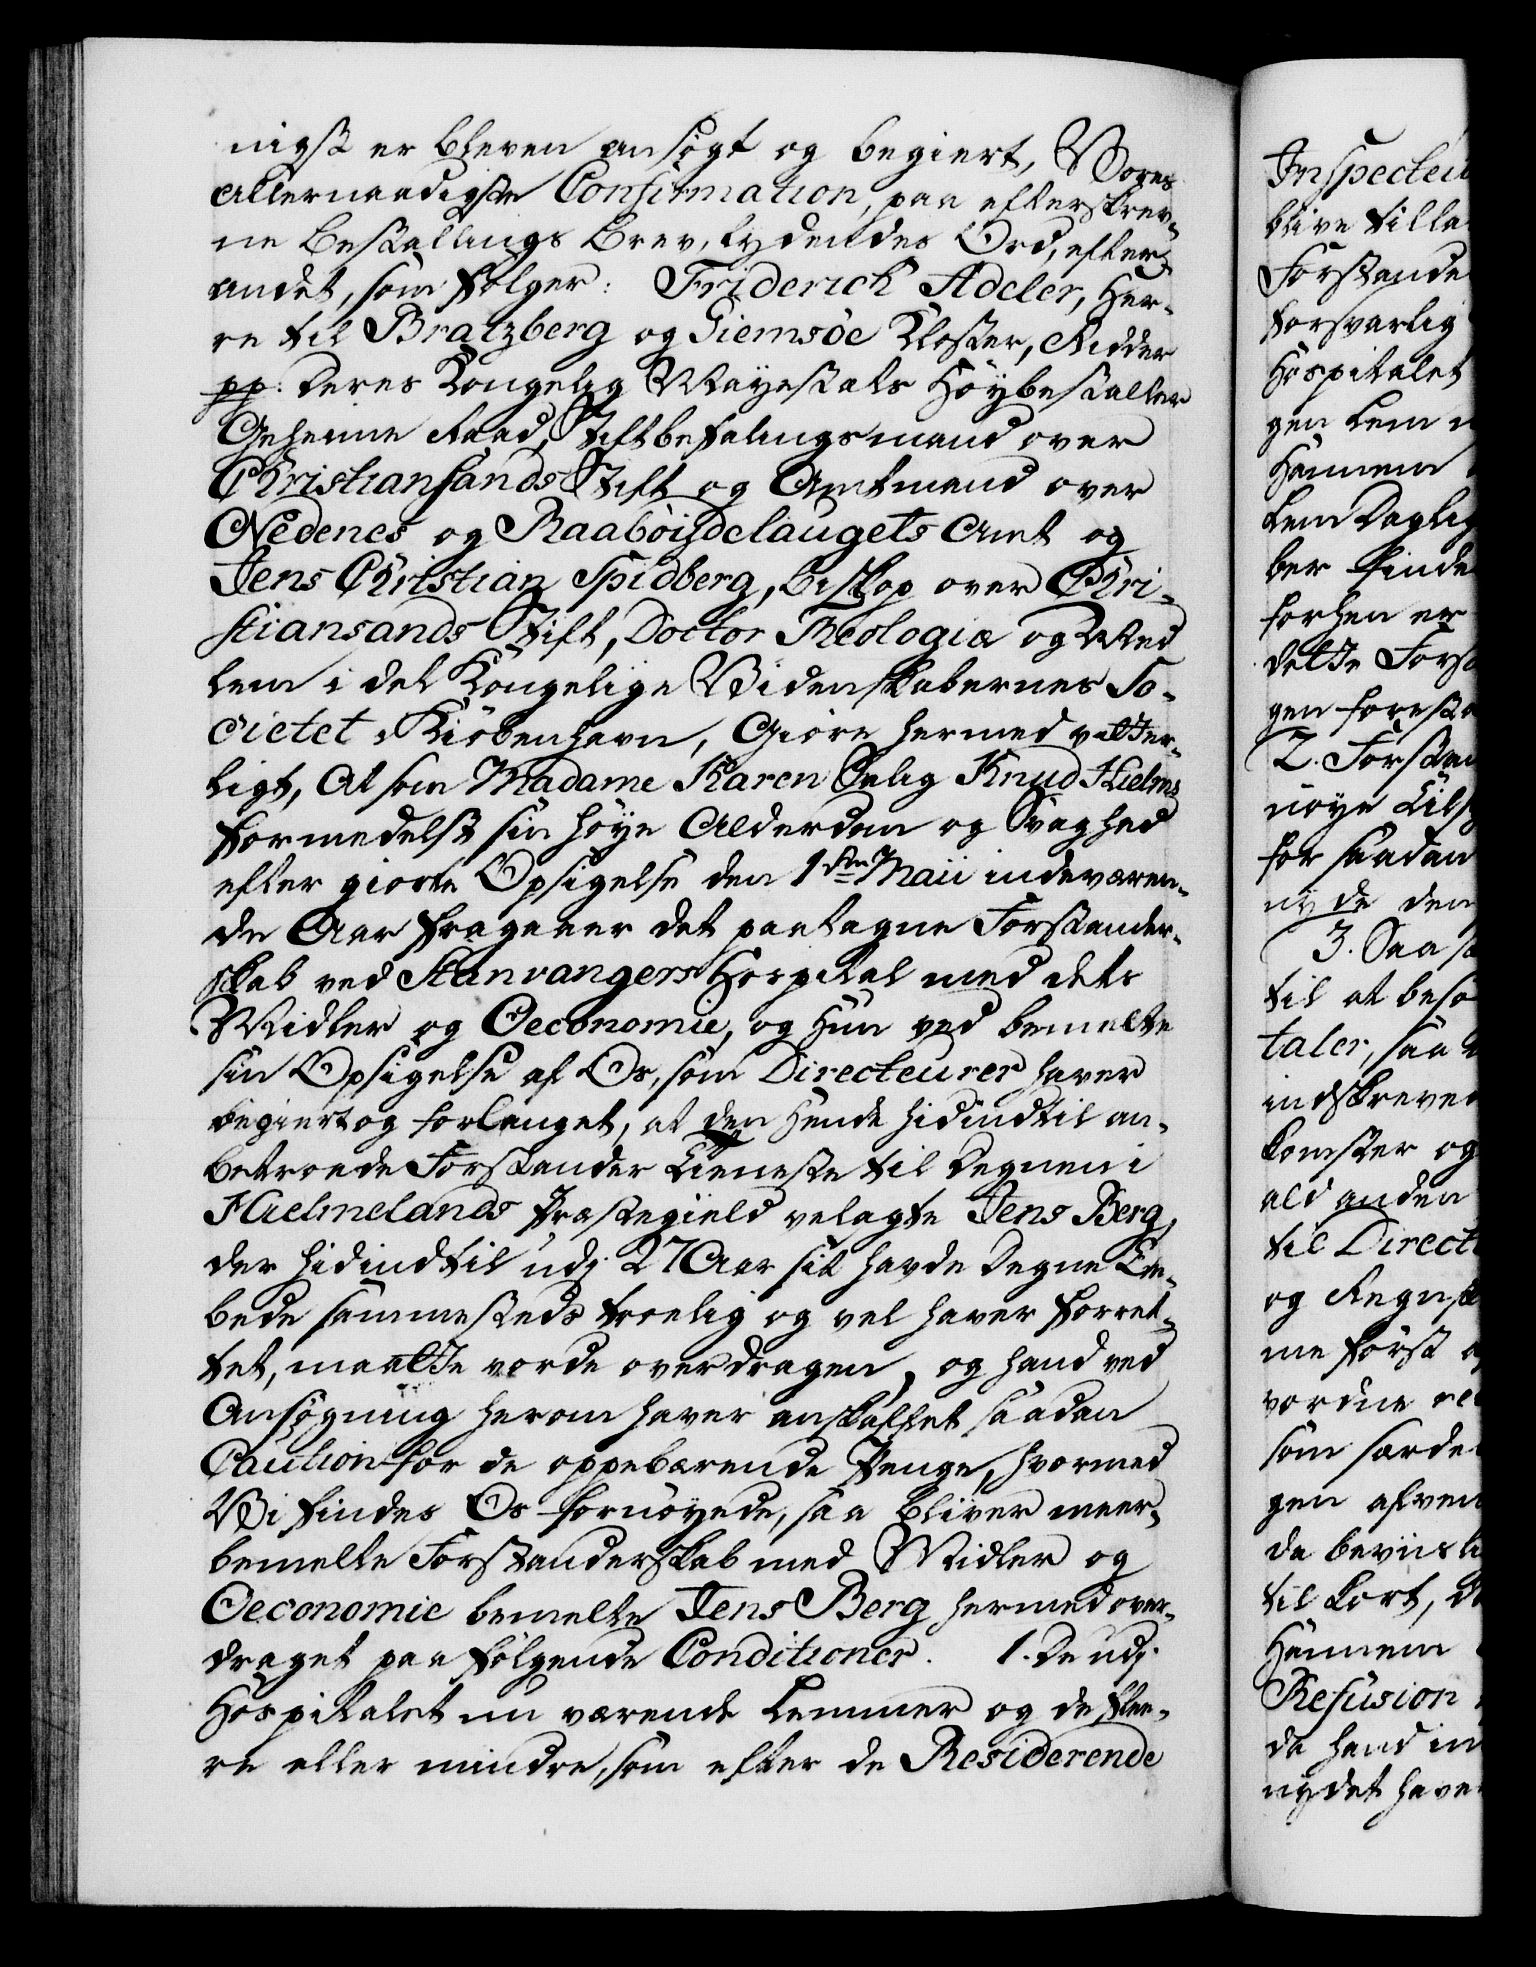 nigst er bleven ansøgt og begiert, Vores
allernaadigste Confirmation, paa efterskrev-
ne Bestallings Brev, lydendes Ord, efter
andet, som følger: Friderich Adeler, Her-
re til Bratzberg og Giemsöe Kloster, Ridder
pp. Deres Kongelig Mayestæts Høybestalter
Geheime Raad, Stiftbefalingsmand over
Christiansands Stift og Amtmand over
Nedenes og Raaböigdelaugets Amt og
Jens Christian Spidberg, Biskop over Chri-
stiansands Stift, Doctor Theologiæ og Med
lem i det Kongelige Videnskabernes So-
cietet i Kiöbenhavn, Giöre hermed vitter-
ligt, At som Madame Karen Salig Knud Hielms
formedelst sin høye Alderdom og Svaghed
efter giorte Opsigelse den 1ste Maii indeværen-
de Aar fragaaer det paatagne Forstander-
skab ved Stavangers Hospital med dets
Midler og Oeconomie, og Hun ved bemelte
sin Opsigelse af Os, som Directeurer haver
begiert og forlanget, at den Hende hidindtil an-
betroede Forstander Tieneste til Degnen i
Hielmelands Præstegield velagte Jens Berg,
der hidindtil udj 27 Aar sit havde Degne Em-
bede sammesteds troelig og vel haver forret-
tet, maatte vorde overdragen, og hand ved
Ansøgning herom haver anskaffet saadan
Caution for de oppebærende Penge, hvormed
Vi findes Os fornöyede, saa bliver meer-
bemelte Forstanderskab med Midler og
Oeconomie bemelte Jens Berg hermed over-
draget paa følgende Conditioner. 1. De udj
Hospitalet nu værende Lemmer og de flee-
re eller mindre, som efter de Residerende
Inspecteu
blive tilla
Forstande
forsvarlig
Hospitalet
gen Lem
Hannem
Lem Daglig
ber finde
forhen er
dette Forst
gen forsta
2. Forstan
nöye Tils
for saadan
nyde den
3. Saa s
til at besø
taler, saa
indskreve
komster og
ald anden
til Direct
og Regnsk
me først
vordne
som særde
gen afven
da beviisli
til kort,
Hannem
Refusion
da hand in
nydet have